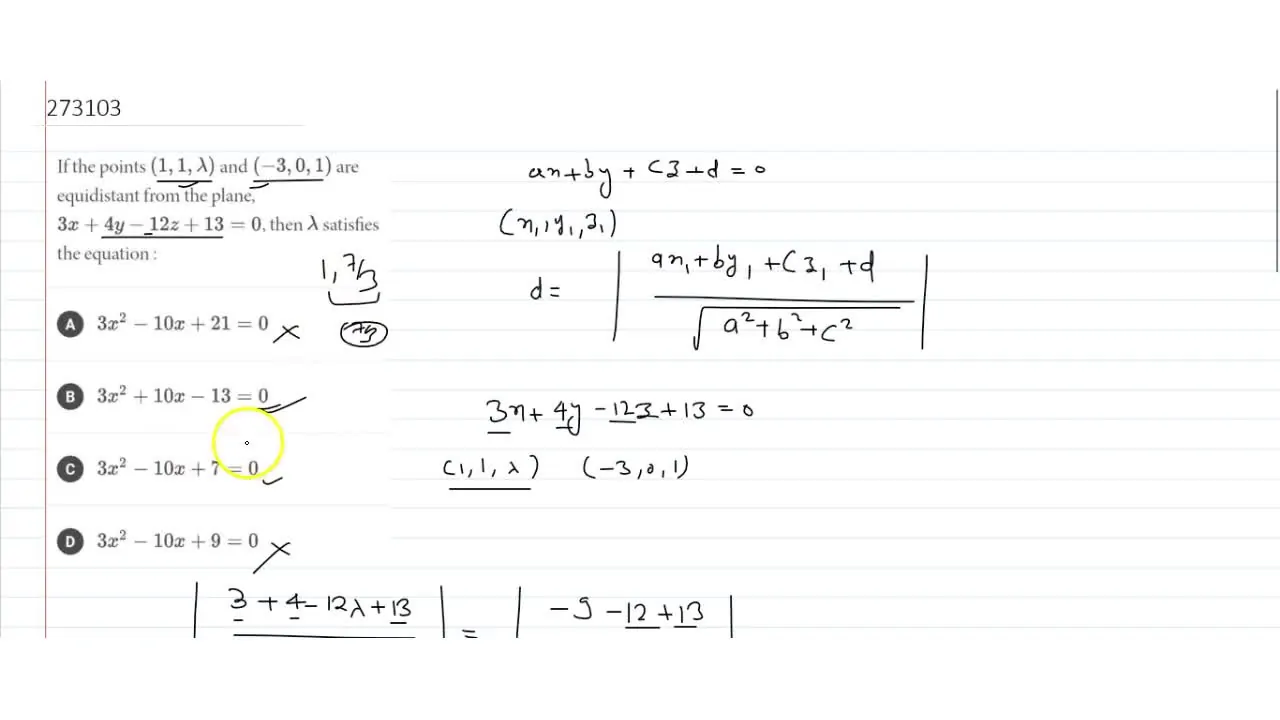 273103
If the points (1, 1, λ) and (−3, 0, 1) are
equidistant from the plane,
3x + 4y − 12z + 13 = 0, then λ satisfies
the equation :
1, 7/3
A 3x² − 10x + 21 = 0
7/3
B 3x² + 10x − 13 = 0
C 3x² − 10x + 7 = 0
D 3x² − 10x + 9 = 0
ax+by + cz+d = 0
(x₁, y₁, z₁)
d = | ax₁+by₁ +cz₁ +d / √a²+b²+c² |
3x+ 4y −12z +13 = 0
(1, 1, λ) (−3, 0, 1)
| 3 + 4 − 12λ + 13 | = | −9 −12 +13 |